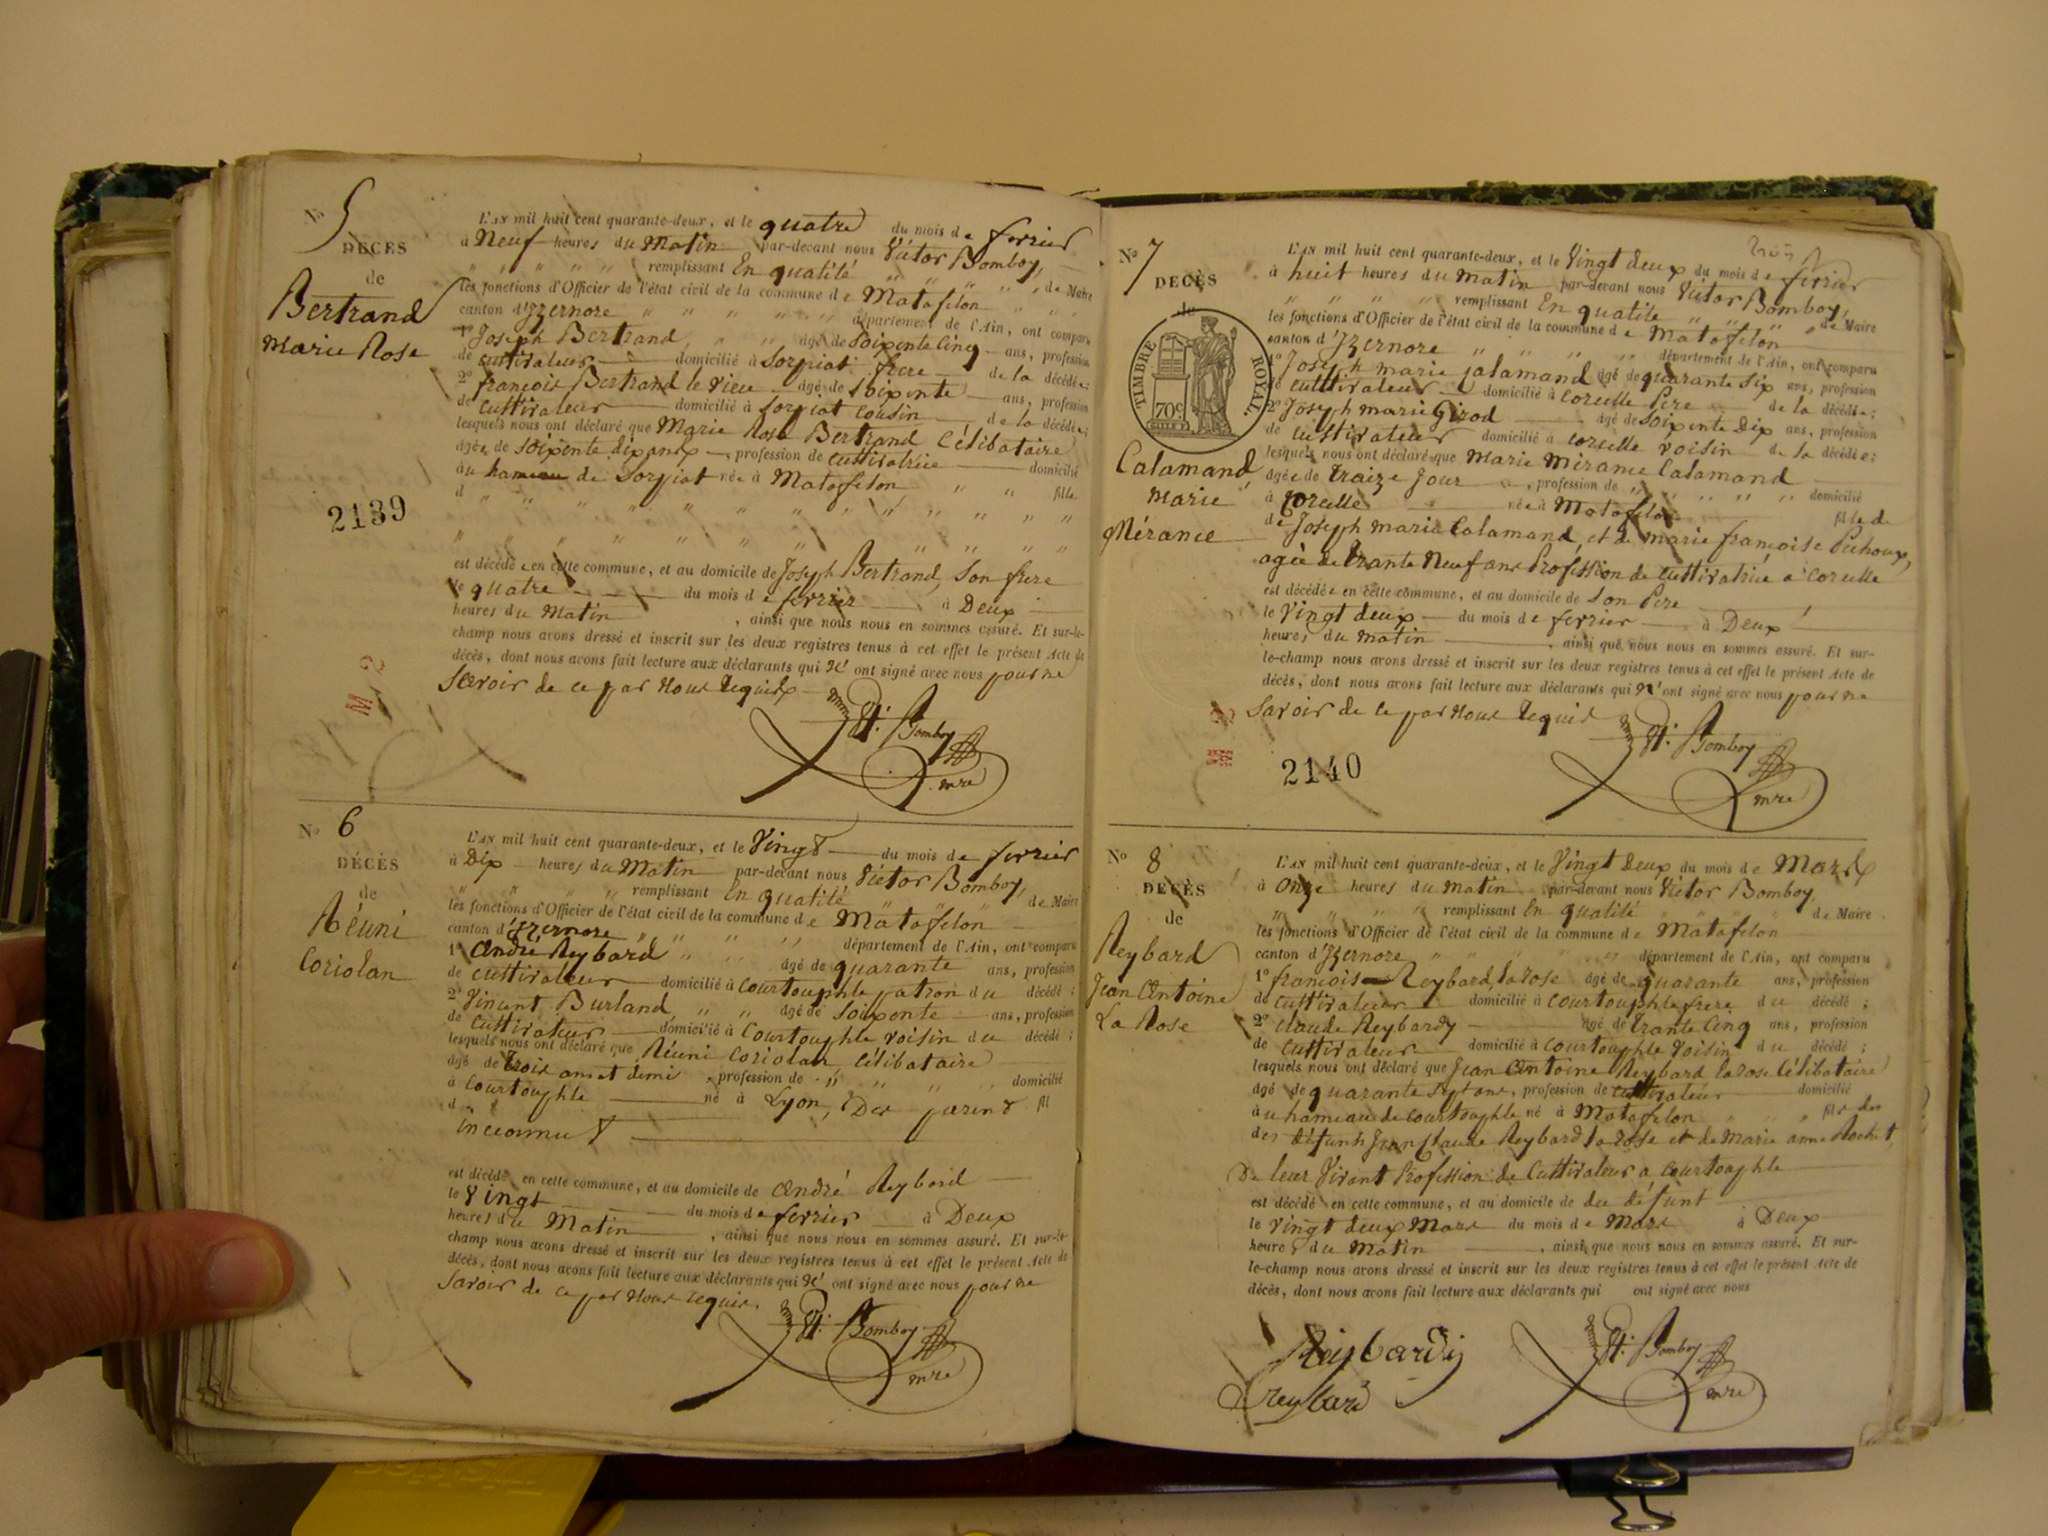 N.º 5
DÉCÈS
de
Bertrand
Marie Rose
2139
L'AN mil huit cent quarante-deux, et le quatre du mois de fevrier
à Neuf heures du Matin par-devant nous Victor Bomboy,
" " " " " remplissant En qualité " " " de Maire
les fonctions d'Officier de l'état civil de la commune de Matafelon " " "
canton d'Izernore " " " " " " département de l'Ain, ont comparu
1º Joseph Bertrand, " " âgé de Soixente Cinq ans, profession
de Cuttivateur domicilié à Sorpiat frere de la décédée;
2º françois Bertrand le vieu âgé de Soixente ans, profession
de Cuttivateur domicilié à Sorpiat Cousin de la décédée;
lesquels nous ont déclaré que Marie Rose Bertrand Célibataire
âgée de Soixente dix ans, profession de Cuttivatrice domicilié
au hameau de Sorpiat née à Matafelon " " fille
d " " " " " " " " " " "
" " " " " " " " " " "
est décédée en cette commune, et au domicile de Joseph Bertrand, Son frere
le quatre du mois de fevrier à Deux
heures du Matin, ainsi que nous nous en sommes assuré. Et sur-le-
champ nous avons dressé et inscrit sur les deux registres tenus à cet effet le présent Acte de
décès, dont nous avons fait lecture aux déclarants qui N' ont signé avec nous pour ne
Savoir de ce par Nous Requis
Vt. Bomboy
mre
N.º 6
DÉCÈS
de
Réuni
Coriolan
L'AN mil huit cent quarante-deux, et le Vingt du mois de fevrier
à Dix heures du Matin par-devant nous Victor Bomboy,
" " " " remplissant En qualité de Maire
les fonctions d'Officier de l'état civil de la commune de Matafelon
canton d'Izernore " " " " département de l'Ain, ont comparu
1º André Reybard âgé de quarante ans, profession
de Cuttivateur domicilié à Courtouphle patron du décédé;
2º Vincent Burland, " " âgé de Soixente ans, profession
de Cuttivateur domicilié à Courtouphle voisin du décédé;
lesquels nous ont déclaré que Réuni Coriolan Célibataire
âgé de trois ans et demi, profession de " " " " domicilié
à Courtouphle né à Lyon, Des parent fil
d inconnut
est décédé en cette commune, et au domicile de André Reybard
le Vingt du mois de fevrier à Deux
heures du Matin, ainsi que nous nous en sommes assuré. Et sur-le-
champ nous avons dressé et inscrit sur les deux registres tenus à cet effet le présent Acte de
décès, dont nous avons fait lecture aux déclarants qui N' ont signé avec nous pour ne
Savoir de ce par Nous Requis.
Vt. Bomboy
mre
N.º 7
DÉCÈS
de
TIMBRE ROYAL.
70c
Calamand,
Marie
Mérance
L'AN mil huit cent quarante-deux, et le Vingt deux du mois de fevrier
à huit heures du Matin par-devant nous Victor Bomboy,
" " " " remplissant En qualité de Maire
les fonctions d'Officier de l'état civil de la commune de Matafelon
canton d'Izernore " " " " " département de l'Ain, ont comparu
1º Joseph marie Calamand âgé de quarante Six ans, profession
de Cuttivateur domicilié à Corcelle Pere de la décédée;
2º Joseph marie Girod âgé de Soixente Dix ans, profession
de Cuttivateur domicilié à Corcelle voisin de la décédée;
lesquels nous ont déclaré que Marie Mérance Calamand
âgée de traize Jour, profession de " " " " " domicilié
à Corcelle née à Matafelon fille de
de Joseph marie Calamand, et de marie françoise Puhoux,
agée de trante Neuf ans Profession de Cuttivatrice à Corcelle
est décédée en cette commune, et au domicile de Son Pere
le Vingt deux du mois de fevrier à Deux
heures du Matin, ainsi que nous nous en sommes assuré. Et sur-
le-champ nous avons dressé et inscrit sur les deux registres tenus à cet effet le présent Acte de
décès, dont nous avons fait lecture aux déclarants qui N' ont signé avec nous pour ne
Savoir de ce par Nous Requis
Vt. Bomboy
mre
2140
N.º 8
DÉCÈS
de
Reybard
Jean Antoine
La Rose
L'AN mil huit cent quarante-deux, et le Vingt Deux du mois de Mars
à Onze heures du Matin par-devant nous Victor Bomboy,
" " " " remplissant En qualité de Maire
les fonctions d'Officier de l'état civil de la commune de Matafelon
canton d'Izernore " " " " " département de l'Ain, ont comparu
1º françois Reybard, la rose âgé de quarante ans, profession
de Cuttivateur domicilié à Courtouphle frere du décédé;
2º Claude Reybardy âgé de trante Cinq ans, profession
de Cuttivateur domicilié à Courtouphle Voisin du décédé;
lesquels nous ont déclaré que Jean Antoine Reybard la rose Célibataire
âgé de quarante Sept ans, profession de Cuttivateur domicilié
au hameau de Courtouphle né à Matafelon fils des
des défunts Jean Claude Reybard la rose et de Marie anne Rochet,
De leur Vivant Profession de Cuttivateur a Courtouphle
est décédé en cette commune, et au domicile de du défunt
le Vingt deux Mars du mois de Mars à Deux
heures du Matin, ainsi que nous nous en sommes assuré. Et sur-
le-champ nous avons dressé et inscrit sur les deux registres tenus à cet effet le présent Acte de
décès, dont nous avons fait lecture aux déclarants qui ont signé avec nous
Reybardy
reybard
Vt. Bomboy
mre